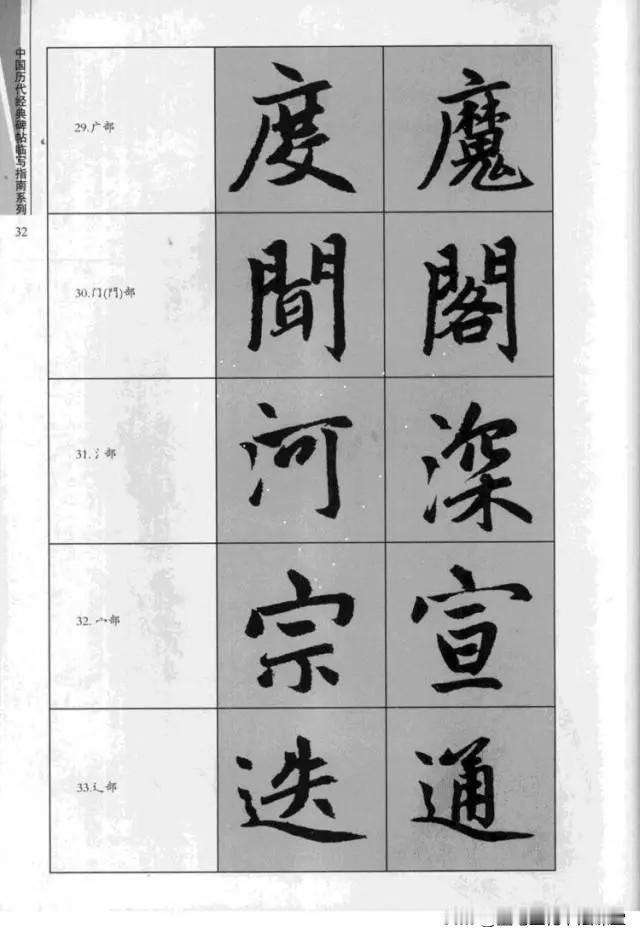 中国历代经典碑帖临写指南系列
32
29.广部
度 魔
30.门(門)部
聞 閣
31.氵部
河 深
32.宀部
宗 宣
33.辶部
迭 通